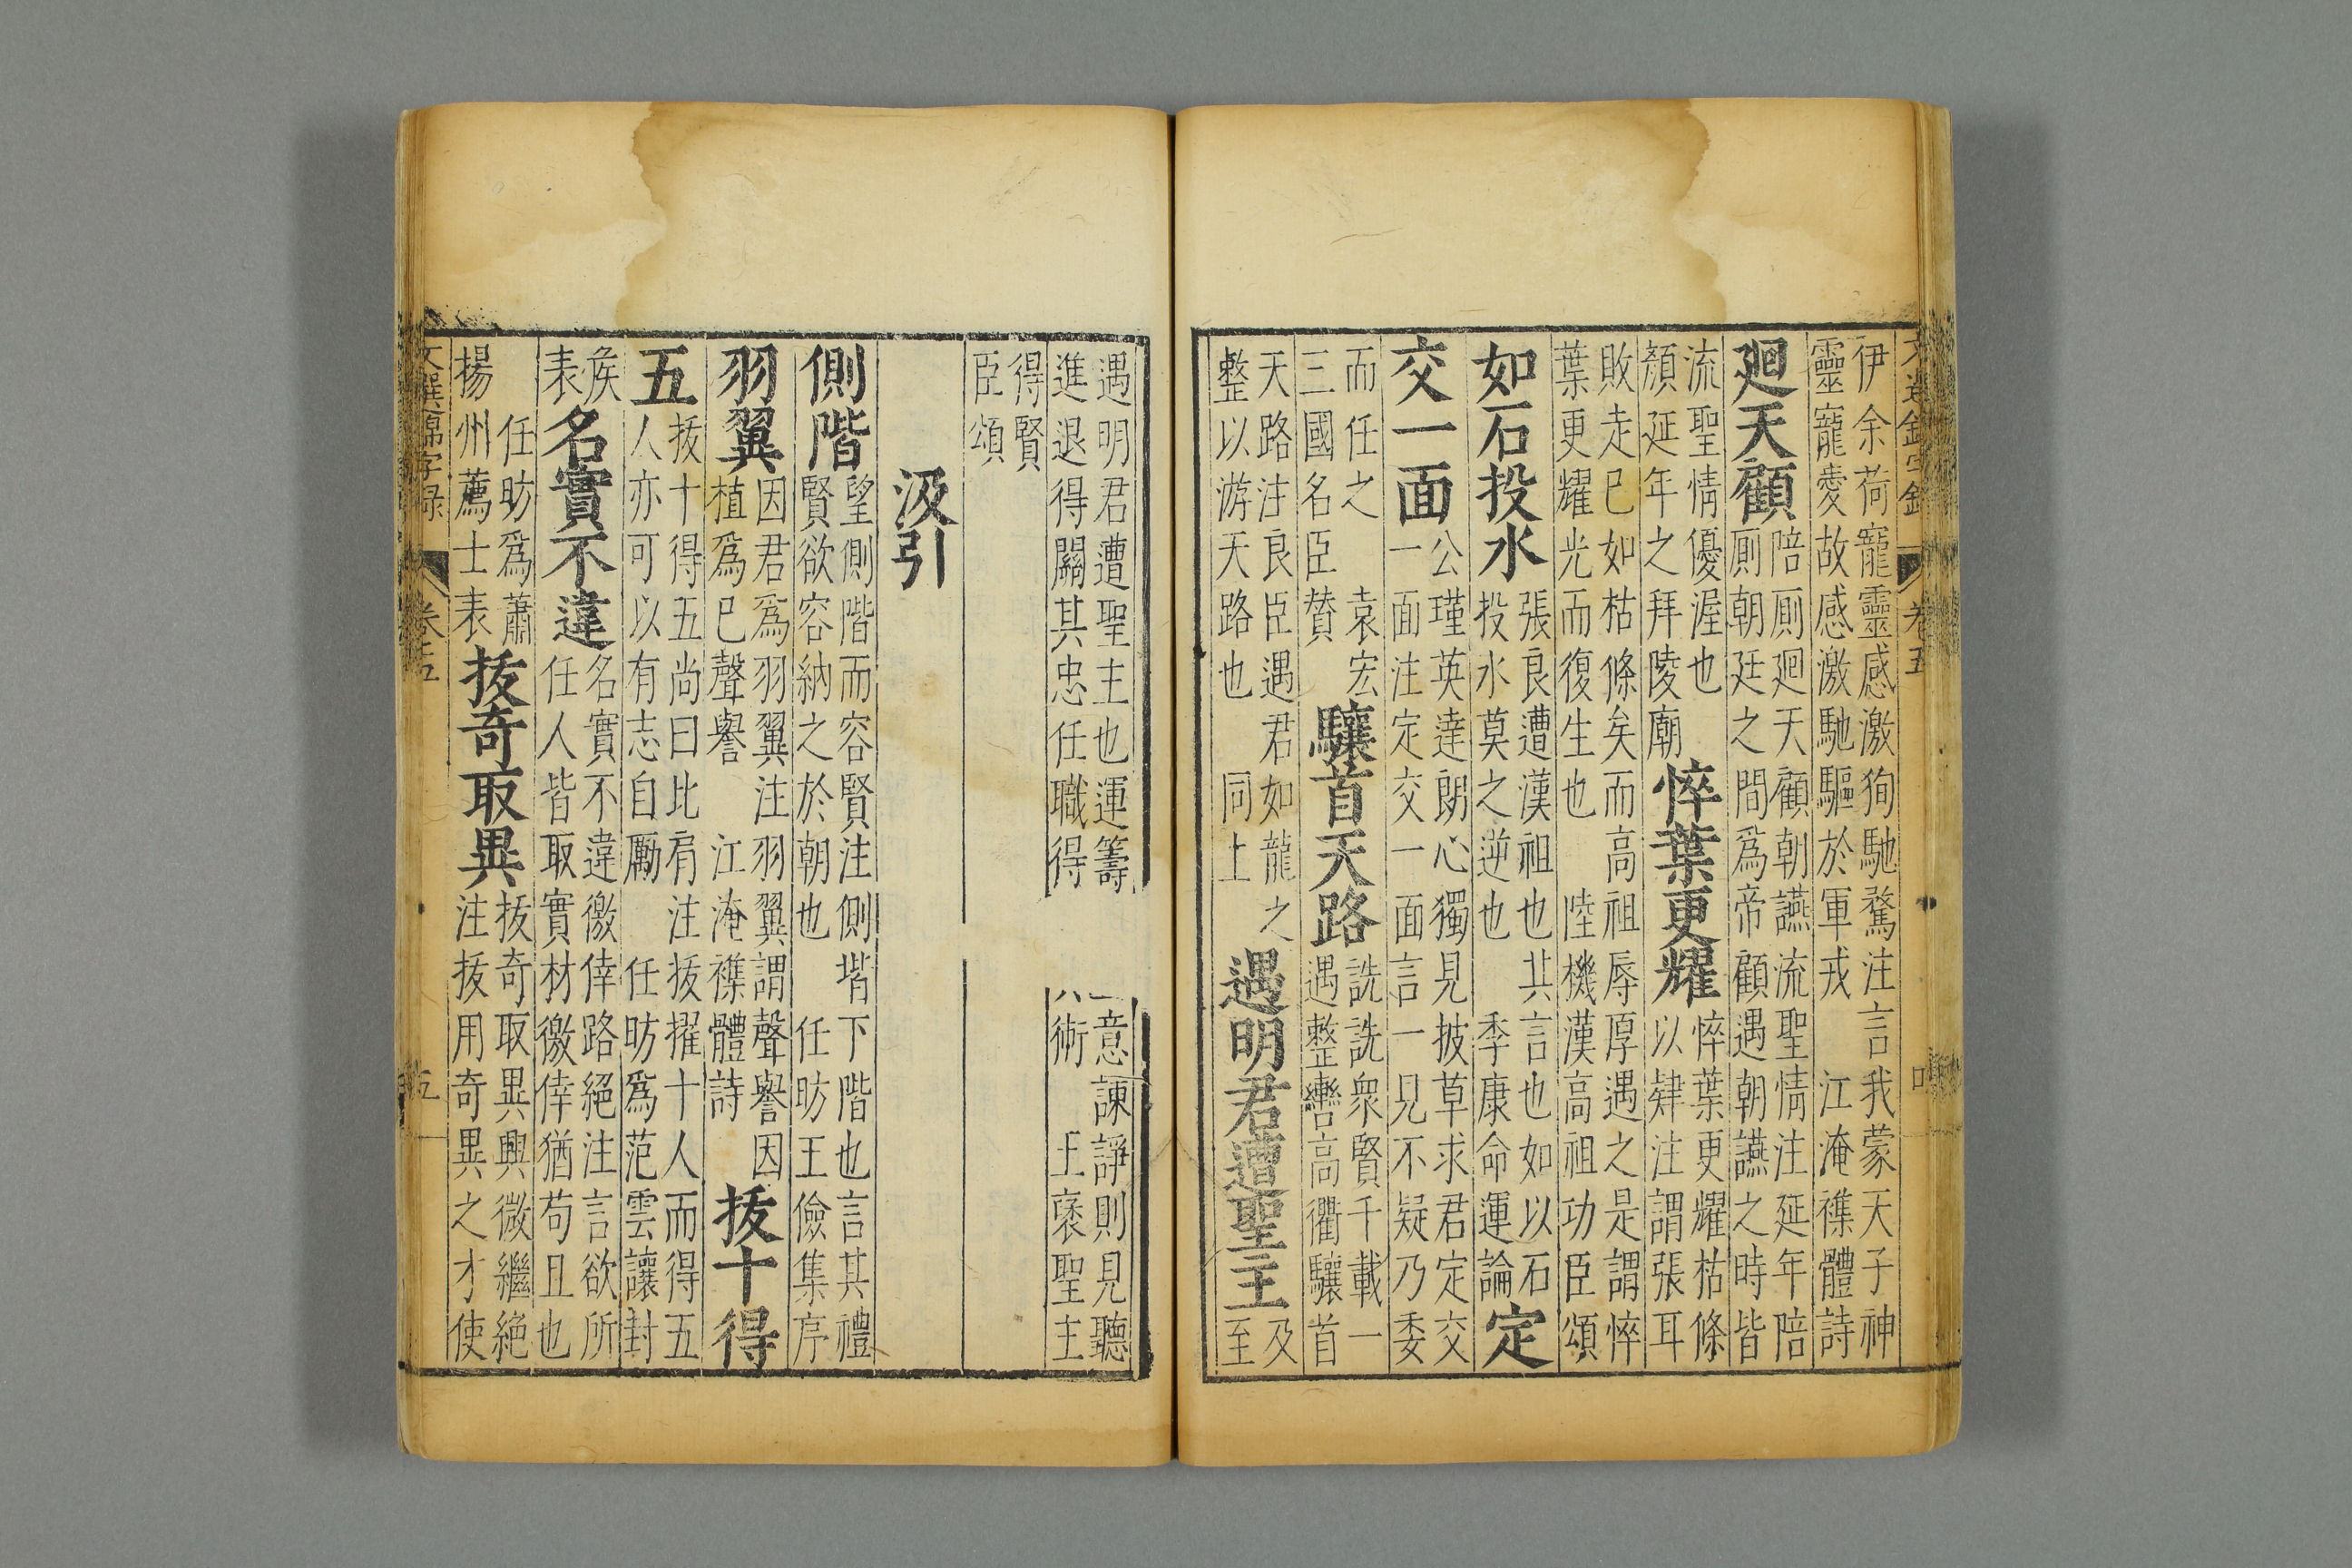 伊余荷寵靈感激狥馳騖注言我蒙天子神
靈寵愛故感激馳驅於軍戎 江淹襍體詩
廻天顧
陪厠廻天顧朝讌流聖情注延年陪
厠朝廷之間爲帝顧遇朝讌之時皆
流聖情優渥也
顏延年之拜陵廟
悴葉更耀
悴葉更耀枯條
以肄注謂張耳
敗走已如枯條矣而高祖辱厚遇之是謂悴
葉更耀光而復生也 陸機漢高祖功臣頌
如石投水
張良遭漢祖也其言也如以石
投水莫之逆也 季康命運論
定
交一面
公瑾英達朗心獨見披草求君定交
一面注定交一面言一見不疑乃委
而任之 袁宏
三國名臣贊
驤首天路
詵詵衆賢千載一
遇整轡高衢驤首
天路注良臣遇君如龍之
整以游天路也 同上
遇明君遭聖主
及
至
遇明君遭聖主也運籌 意諫諍則見聽
進退得關其忠任職得 術 王褒聖主
得賢
臣頌
汲引
側階
望側階而容賢注側堦下階也言其禮
賢欲容納之於朝也 任昉王儉集序
羽翼
因君爲羽翼注羽翼謂聲譽因
植爲已聲譽 江淹襍體詩
拔十得
五
拔十得五尚曰比肩注拔擢十人而得五
人亦可以有志自勵 任昉爲范雲讓封
矦
表
名實不違
名實不違徼倖路絕注言欲所
任人皆取實材徼倖猶苟且也
任昉爲蕭
揚州薦士表
拔奇取異
拔奇取異興微繼絕
注拔用奇異之才使
文選錦字録 卷五 五